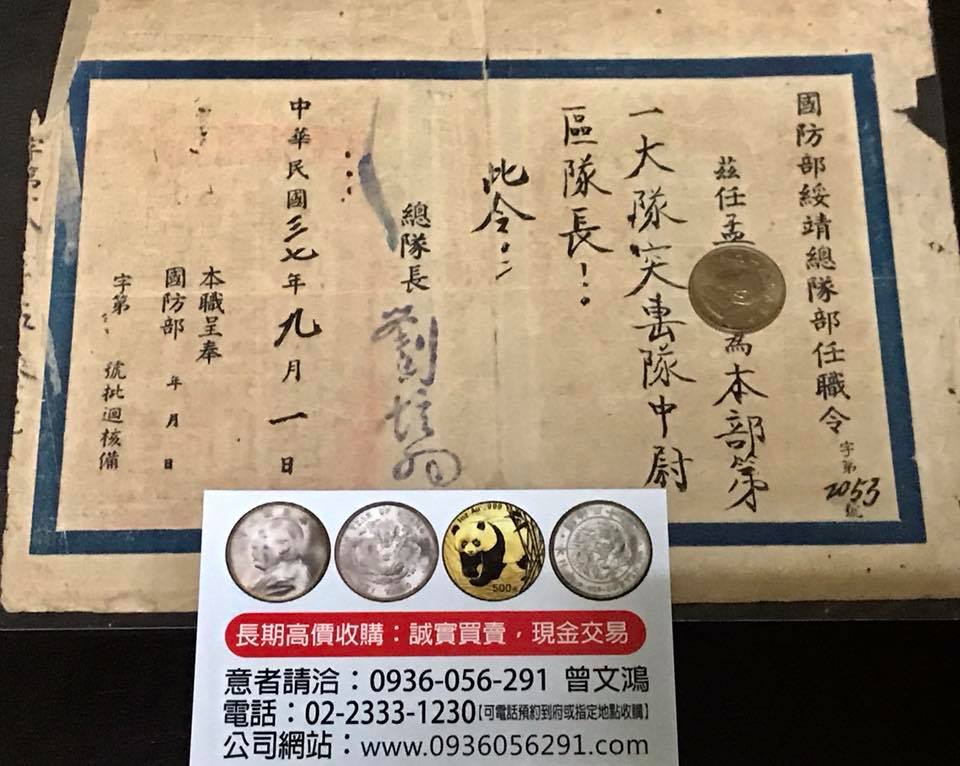 國防部綏靖總隊部任職令
字第2053號
茲任孟 為本部第
一大隊突擊隊中尉
區隊長!
此令。
總隊長
中華民國三七年九月一日
本職呈奉
國防部 年 月 日
字第 號批迴核備
500元
長期高價收購:誠實買賣,現金交易
意者請洽:0936-056-291 曾文鴻
電話:02-2333-1230【可電話預約到府或指定地點收購】
公司網站:www.0936056291.com